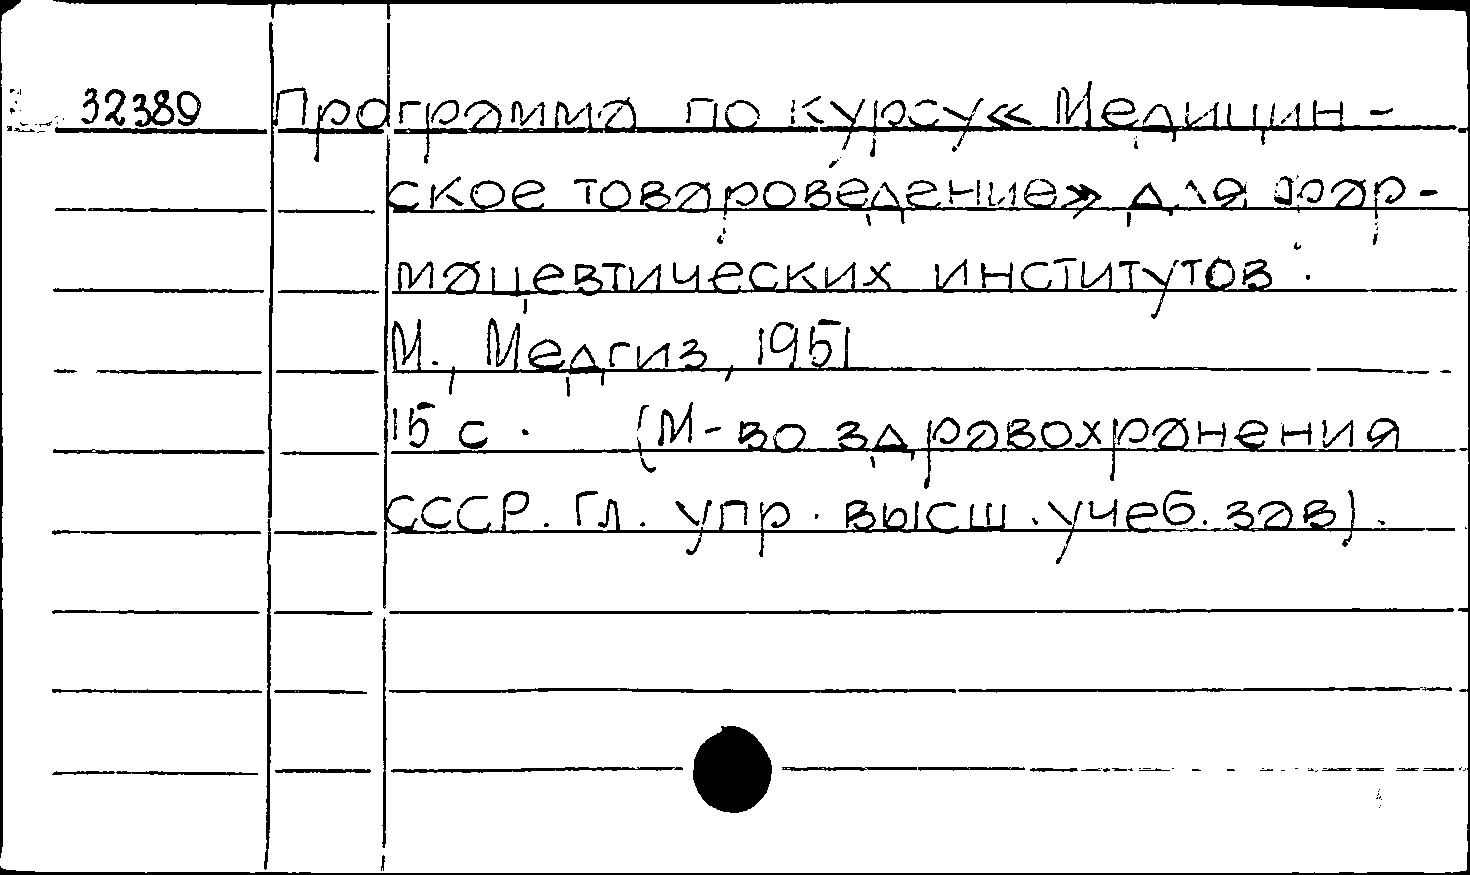 32389 Программа по курсу « Медицин-
ское товароведение» для фар-
мацевтических институтов.
М., Медгиз, 1951
15 с. (М-во здравохранения
СССР. Гл. упр. высш. учеб. зав).